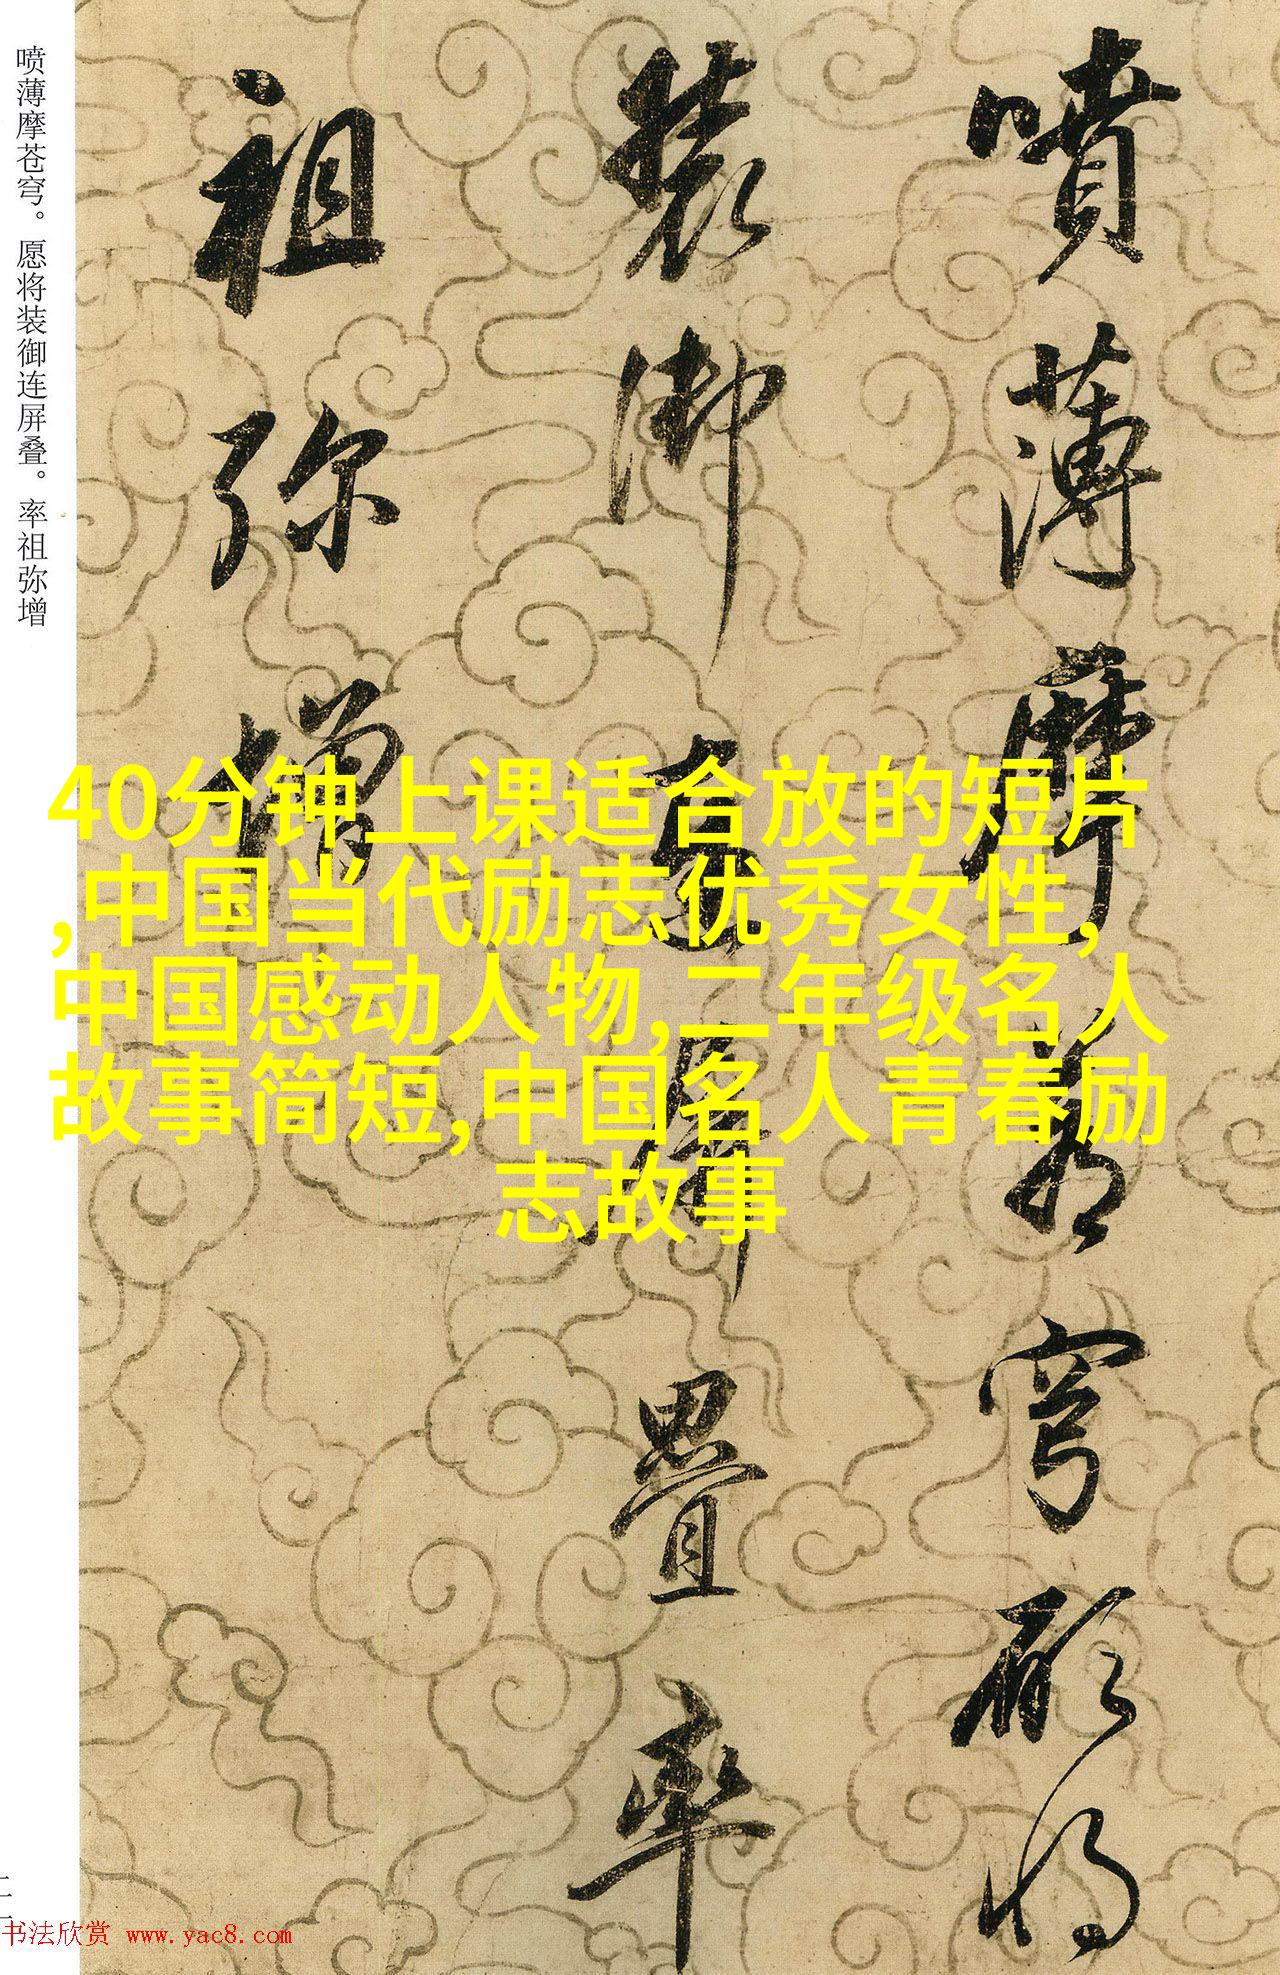 喷薄摩苍穹。愿将装御连屏叠。率祖弥增
噴薄摩蒼穹願將
裝御連屏疊率
祖弥增
40分钟上课适合放的短片
,中国当代励志优秀女性,
中国感动人物,二年级名人
故事简短,中国名人青春励
志故事
书法欣赏 www.yac8.com